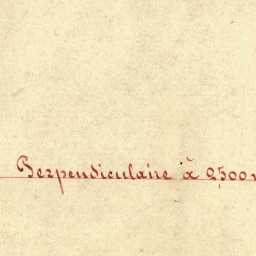 Perpendiculaire à 2500